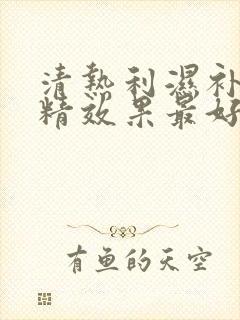 清熱利濕补
精效果最好
有鱼的天空